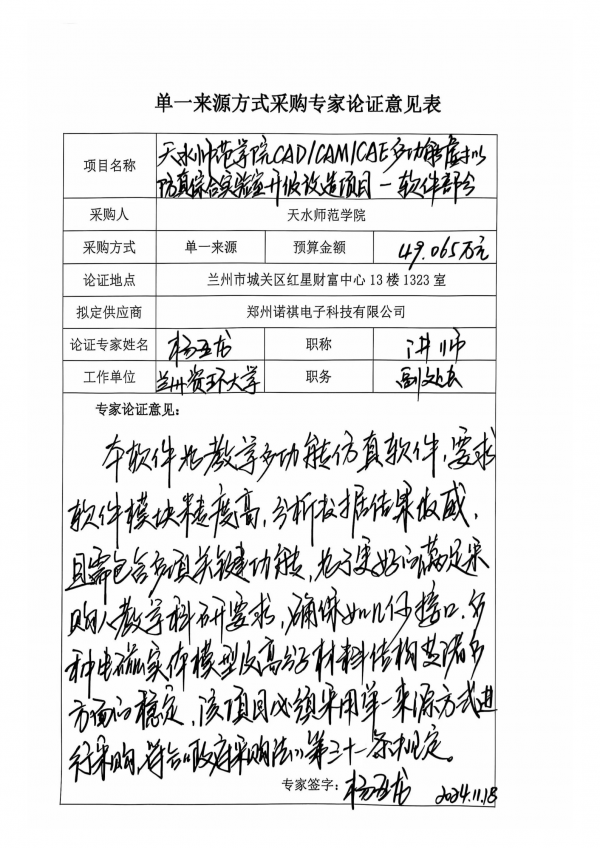 单一来源方式采购专家论证意见表
项目名称 天水师范学院CAD/CAM/CAE多功能虚拟
仿真综合实验室升级改造项目-软件部分
采购人 天水师范学院
采购方式 单一来源 预算金额 49.065万元
论证地点 兰州市城关区红星财富中心13楼1323室
拟定供应商 郑州诺祺电子科技有限公司
论证专家姓名 杨亚龙 职称 讲师
工作单位 兰州资环大学 职务 副处长
专家论证意见：
本软件为教学多功能仿真软件，要求
软件模块精度高，分析数据结果权威，
且需包含多项关键功能，为了更好的满足采
购人教学科研要求，确保如几何接口，多
种电磁实体模型及高分子材料结构
方面的稳定，该项目必须采用单一来源方式进
行采购，符合《政府采购法》第三十一条规定。
专家签字： 杨亚龙 2024.11.18